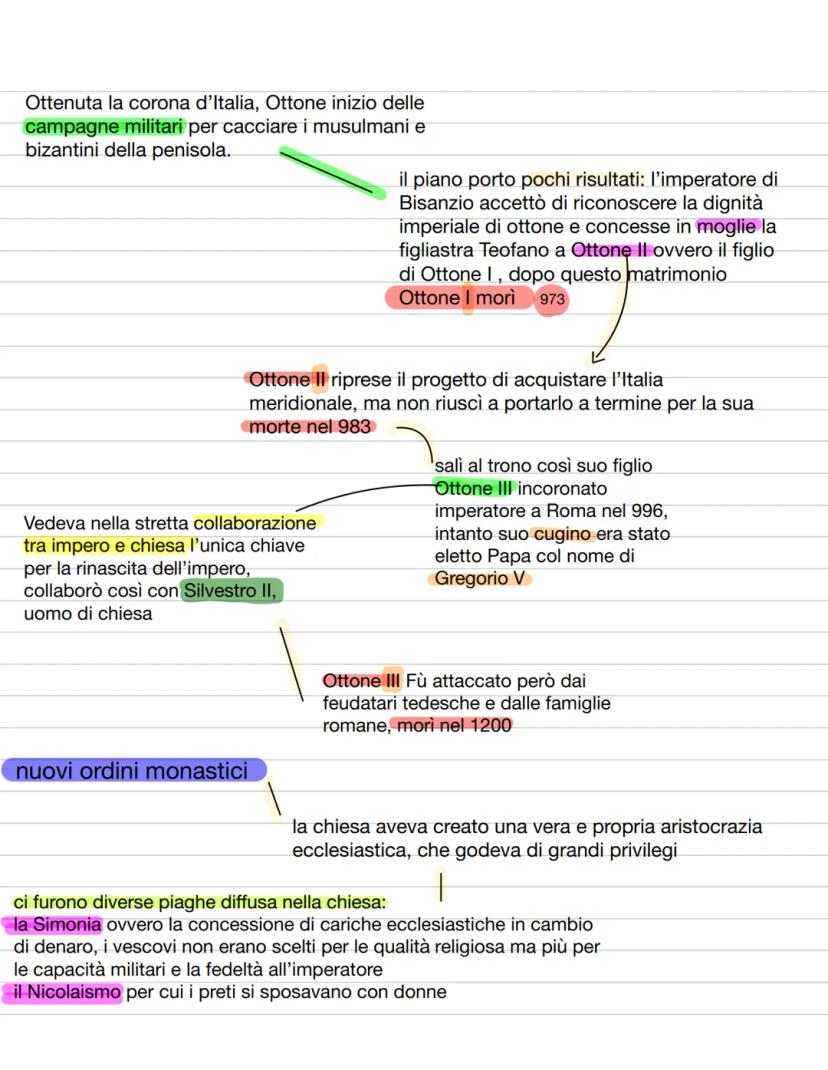 Ottenuta la corona d'Italia, Ottone inizio delle
campagne militari per cacciare i musulmani e
bizantini della penisola.
il piano porto pochi risultati: l'imperatore di
Bisanzio accettò di riconoscere la dignità
imperiale di ottone e concesse in moglie la
figliastra Teofano a Ottone II ovvero il figlio
di Ottone I , dopo questo matrimonio
Ottone I morì 973
Ottone II riprese il progetto di acquistare l'Italia
meridionale, ma non riuscì a portarlo a termine per la sua
morte nel 983
salì al trono così suo figlio
Ottone III incoronato
imperatore a Roma nel 996,
intanto suo cugino era stato
eletto Papa col nome di
Gregorio V
Vedeva nella stretta collaborazione
tra impero e chiesa l'unica chiave
per la rinascita dell'impero,
collaborò così con Silvestro II,
uomo di chiesa
Ottone III Fù attaccato però dai
feudatari tedesche e dalle famiglie
romane, morì nel 1200
nuovi ordini monastici
la chiesa aveva creato una vera e propria aristocrazia
ecclesiastica, che godeva di grandi privilegi
ci furono diverse piaghe diffusa nella chiesa:
la Simonia ovvero la concessione di cariche ecclesiastiche in cambio
di denaro, i vescovi non erano scelti per le qualità religiosa ma più per
le capacità militari e la fedeltà all'imperatore
il Nicolaismo per cui i preti si sposavano con donne